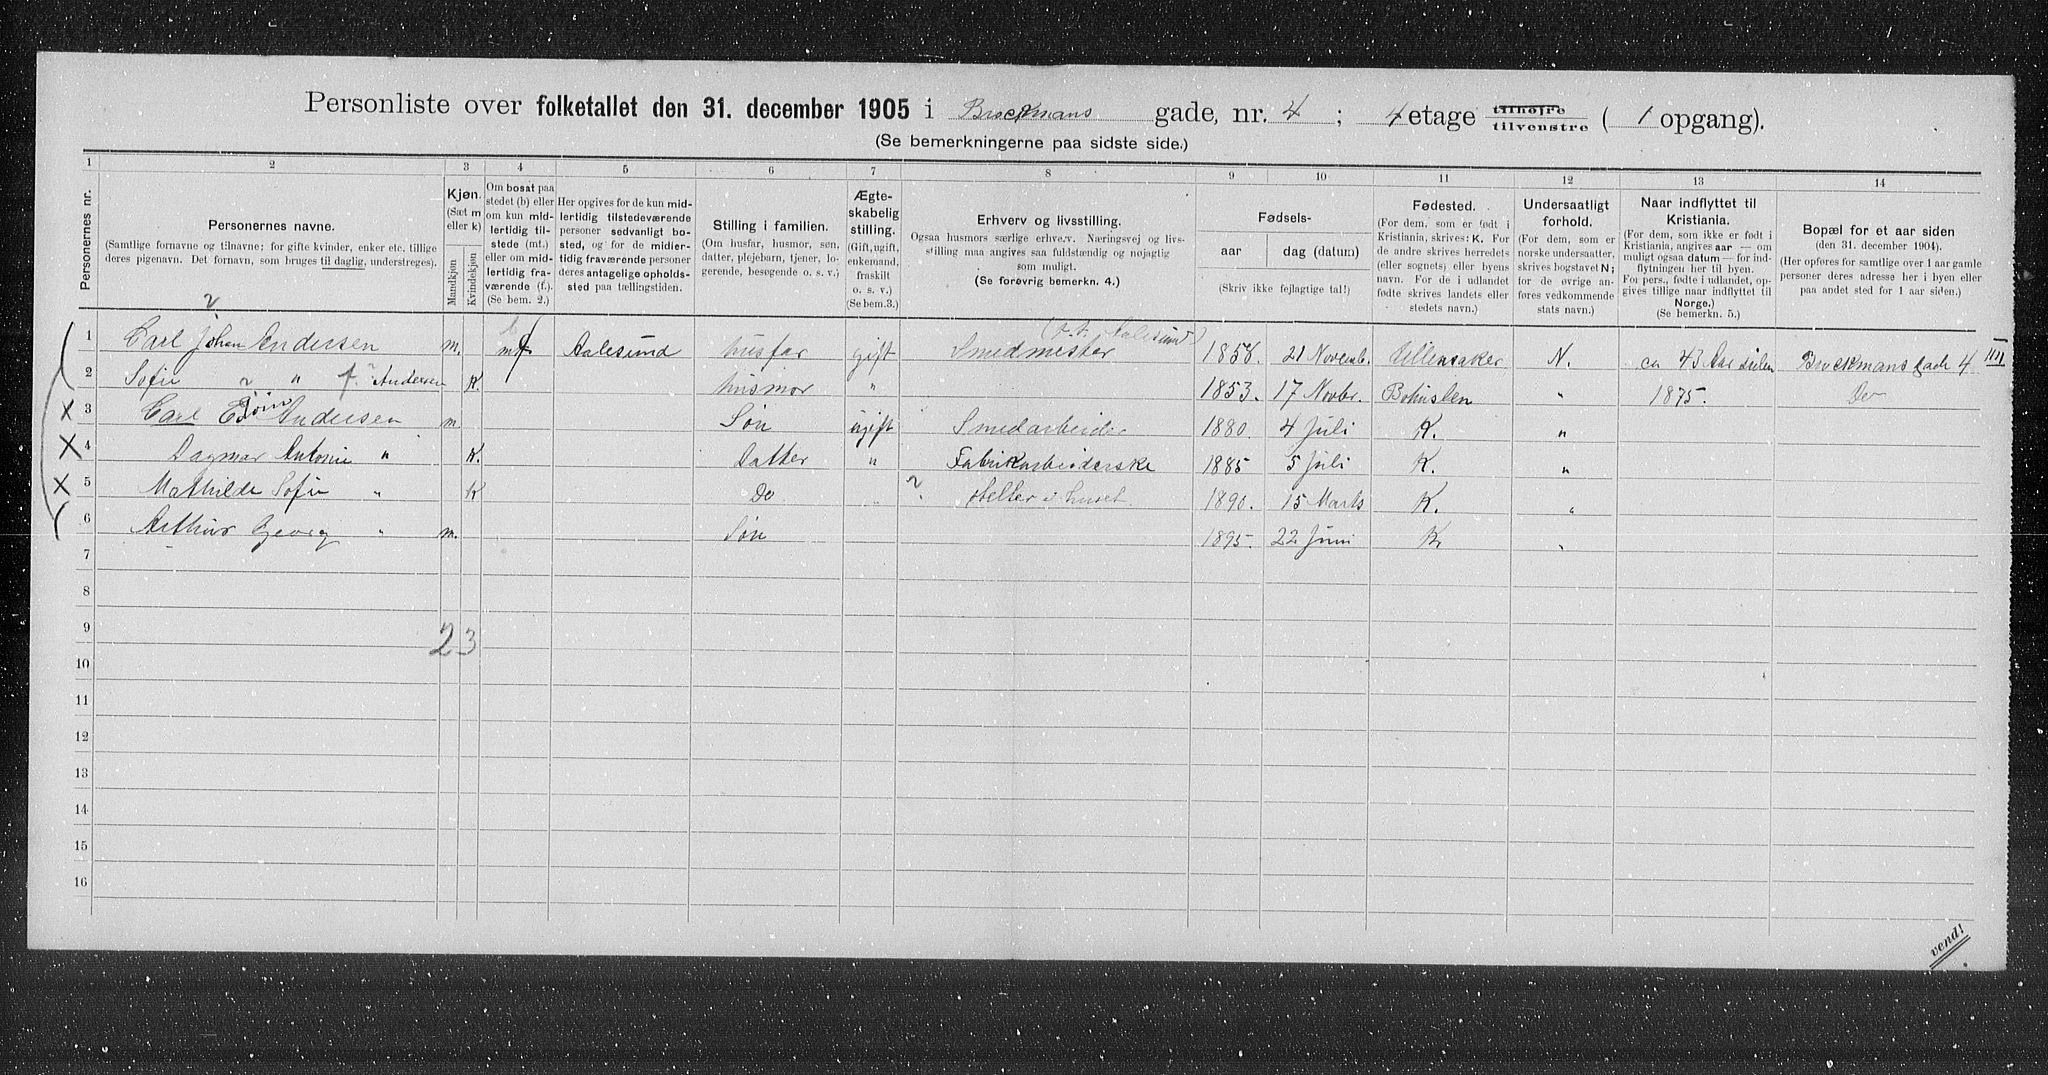 Personliste over folketallet den 31. december 1905 i Brockmans gade, nr. 4 ; 4 etage tilhøjre tilvenstre ( 1 opgang).
(Se bemerkningerne paa sidste side.)
1 2 3 4 5 6 7 8 9 10 11 12 13 14
Personernes nr.
Personernes navne.
(Samtlige fornavne og tilnavne; for gifte kvinder, enker etc. tillige
deres pigenavn. Det fornavn, som bruges til daglig, understreges).
Kjøn.
(Sæt m
eller k)
Mandkjøn
Kvindekjøn
Om bosat paa
stedet (b) eller
om kun mid-
lertidig til-
stede (mt.)
eller om mid-
lertidig fra-
værende (f.).
(Se bem. 2.)
Her opgives for de kun mid-
lertidig tilstedeværende
personer sedvanlig bo-
sted, og for de midler-
tidig fraværende personer
deres antagelige opholds-
sted paa tællingstiden.
Stilling i familien.
(Om husfar, husmor, søn,
datter, plejebarn, tjener, lo-
gerende, besøgende o. s. v.)
Ægte-
skabelig
stilling.
(Gift, ugift,
enkemand,
fraskilt
o. s. v.)
(Se bem.3.)
Erhverv og livsstilling.
Ogsaa husmors særlige erhverv. Næringsvej og livs-
stilling maa angives saa fuldstændig og nøjagtig
som muligt.
(Se forøvrig bemerkn. 4.)
Fødsels-
aar
dag (datum)
(Skriv ikke fejlagtige tal!)
Fødested.
(For dem, som er født i
Kristiania, skrives: K. For
de andre skrives herredets
(eller sognets) eller byens
navn. For de i udlandet
fødte skrives landets eller
stedets navn.)
Undersaatligt
forhold.
(For dem, som er
norske undersaatter,
skrives bogstavet N;
for de øvrige an-
føres vedkommende
stats navn.)
Naar indflyttet til
Kristiania.
(For dem, som ikke er født i
Kristiania, angives aar — om
muligt ogsaa datum — for ind-
flytningen her til byen.
For pers., fødte i udlandet, op-
gives tillige naar indflyttet til
Norge.)
(Se bemerkn. 5.)
Bopæl for et aar siden
(den 31. december 1904).
(Her opføres for samtlige over 1 aar gamle
personer deres adresse her i byen eller
paa andet sted for 1 aar siden.)
1 Carl Johan Andersen m. Aalesund husfar gift Smedmester 1858. 21 Novemb. Ullensaker N. ca 43 Aar siden Brockmans gade 4 III
2 Sofie " " f. Andersen K. husmor " 1853. 17 Novbr. Bohuslen " 1875. Do
3 Carl Andersen m Søn ugift Smedarbeider 1880. 4 Juli K. "
4 Dagmar Antonie " K. Datter " Fabrikarbeiderske 1885 5 Juli K. "
5 Mathilde Sofie " K Do " ? steller i huset 1890. 15 Marts K. "
6 Arthur Georg " m. Søn 1895. 22 Juni K. "
7
8
9
2 3
10
11
12
13
14
15
16
vend!